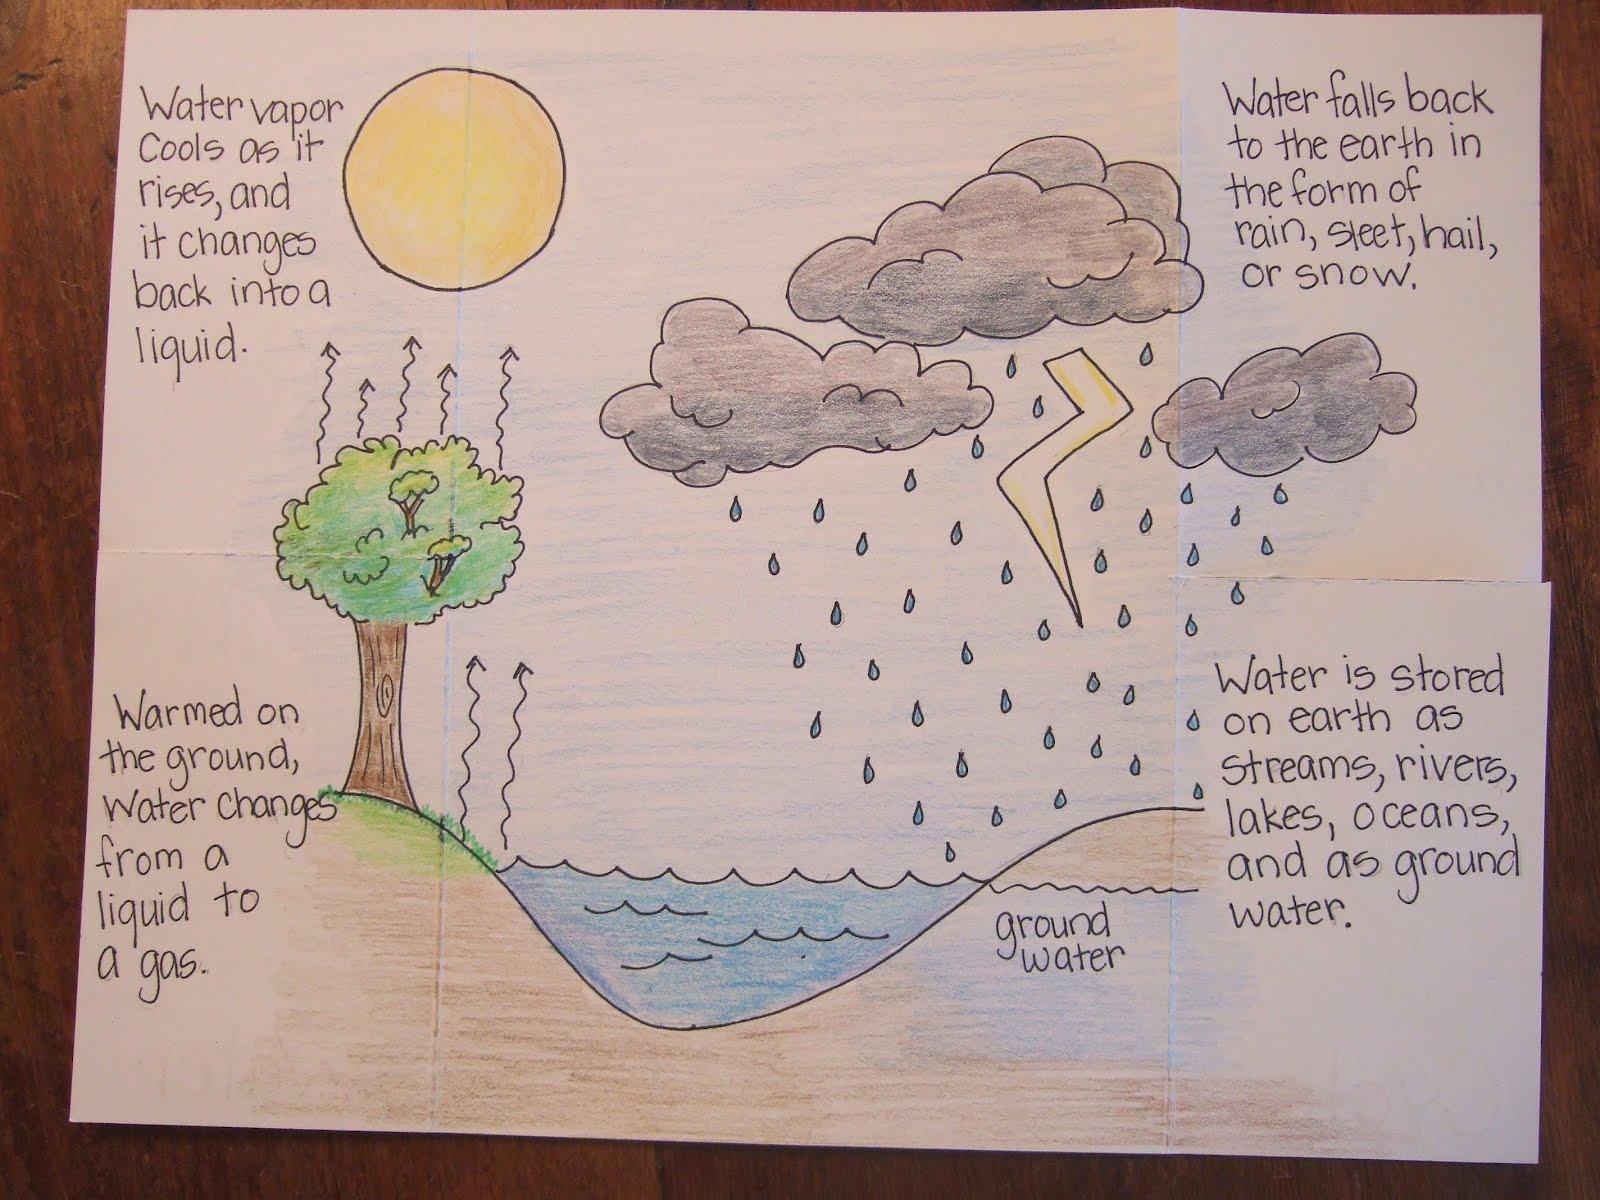 Water vapor
Cools as it
rises, and
it changes
back into a
liquid.
Water falls back
to the earth in
the form of
rain, sleet, hail,
or snow.
Warmed on
the ground,
Water changes
from a
liquid to
a gas.
Water is stored
on earth as
streams, rivers,
lakes, oceans,
and as ground
water.
ground
water